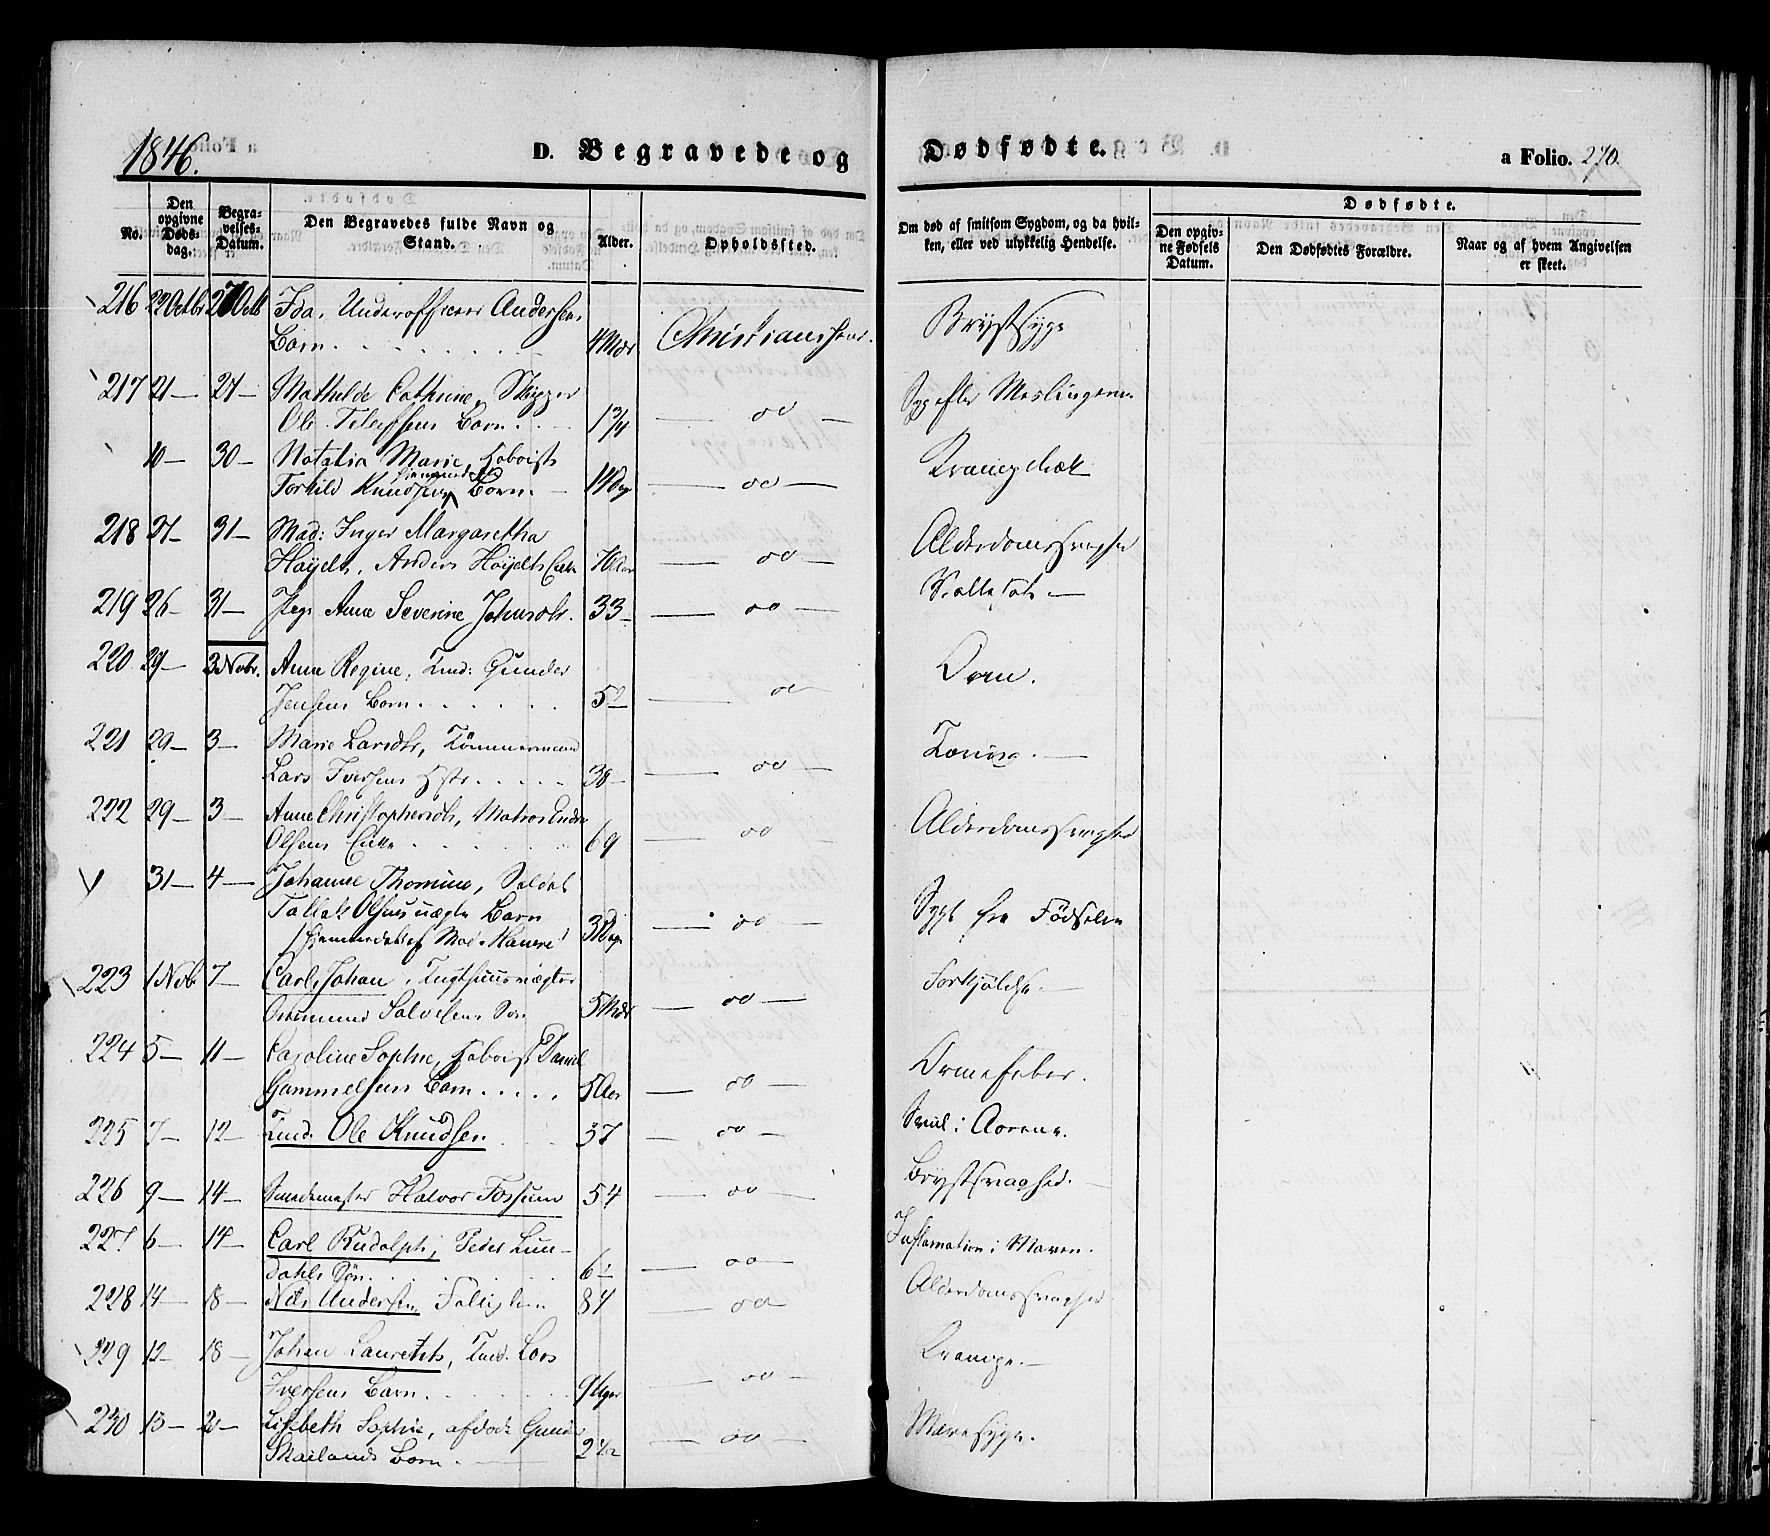 1846.
D. Begravede og
Dødfødte.
a Folio. 270.
No.
Den opgivne Døds-dag.
Begra-velses-Datum.
Den Begravedes fulde Navn og Stand.
Alder.
Opholdssted.
Om død af smitsom Sygdom, og da hvil-ken, eller ved ulykkelig Hendelse.
Dødfødte.
Den opgiv-ne Fødsels Datum.
Den Dødfødtes Forældre.
Naar og af hvem Angivelsen er skeet.
216 22 Octbr 27 Octb Ida, Underofficeer Andersens
Barn. 4 Mdr Christianssand. Brystsyge
217 21 — 27 — Mathilde Cathrine, Skipper
Ole Tellefsens Barn. 1 3/4 — do — Syg efter Meslingerne
10 — 30 — Natalia Marie, Hoboist
Torkild Knudsens hjemmedøbt Barn. 14 Dage — do — Krampe
218 27 — 31 — Mad: Inger Margaretha
Høydts, Anders Høydts Enke 70 Aar — do — Alderdomssvaghed
219 26 — 31 — Pige Anne Severine Johnsdtr. 33 — — do —
220 29 — 3 Nvbr. Anne Regine, Tmd: Gunder
Jensens Barn. 5 — do Orm.
221 29 — 3 — Marie Larsdtr, Tømmermand
Lars Iversens Hstr. 38 — — do — Tæring. —
222 29 — 3 — Anne Christophersdtr, Matros Endre
Olsens Enke 69 — do — Alderdomssvaghed
31 — 4 — Johanne Thomine, Soldat
Tallak Olsens uægte Barn
hjemmedøbt af Mad. Hansen 3 Dage — do — Sygt fra Fødselen
223 1 Nvb 7 — Carl Johan, Tugthuusvægter
Osmund Salvesens Søn 5 Mdr — do — Forkjølelse. —
224 5 — 11 — Caroline Sophie, Hoboist Daniel
Gammelsens Barn 5 Aar — do — Ormefeber.
225 7 — 12 — Tmd. Ole Knudsen 37 — do — i Aarene.
226 9 — 14 — Smedemester Halvor Fossum 54 — do — Brystsvaghed. —
227 6 — 14 — Carl Rudolph, Peder Lun-
dahls Søn. 6 — do — Inflamation i Maven.
228 14 — 18 — Nils Andersen Fattiglem 84 — do Alderdomssvaghed
229 12 — 18 — Johan Lauretits, Tmd. Lars
Iversens Barn. 9 Uger — do — Krampe. —
230 15 — 21 — Lisebeth Sophie, afdøde Gunder
Mailands Barn. — do — Mavesyge.